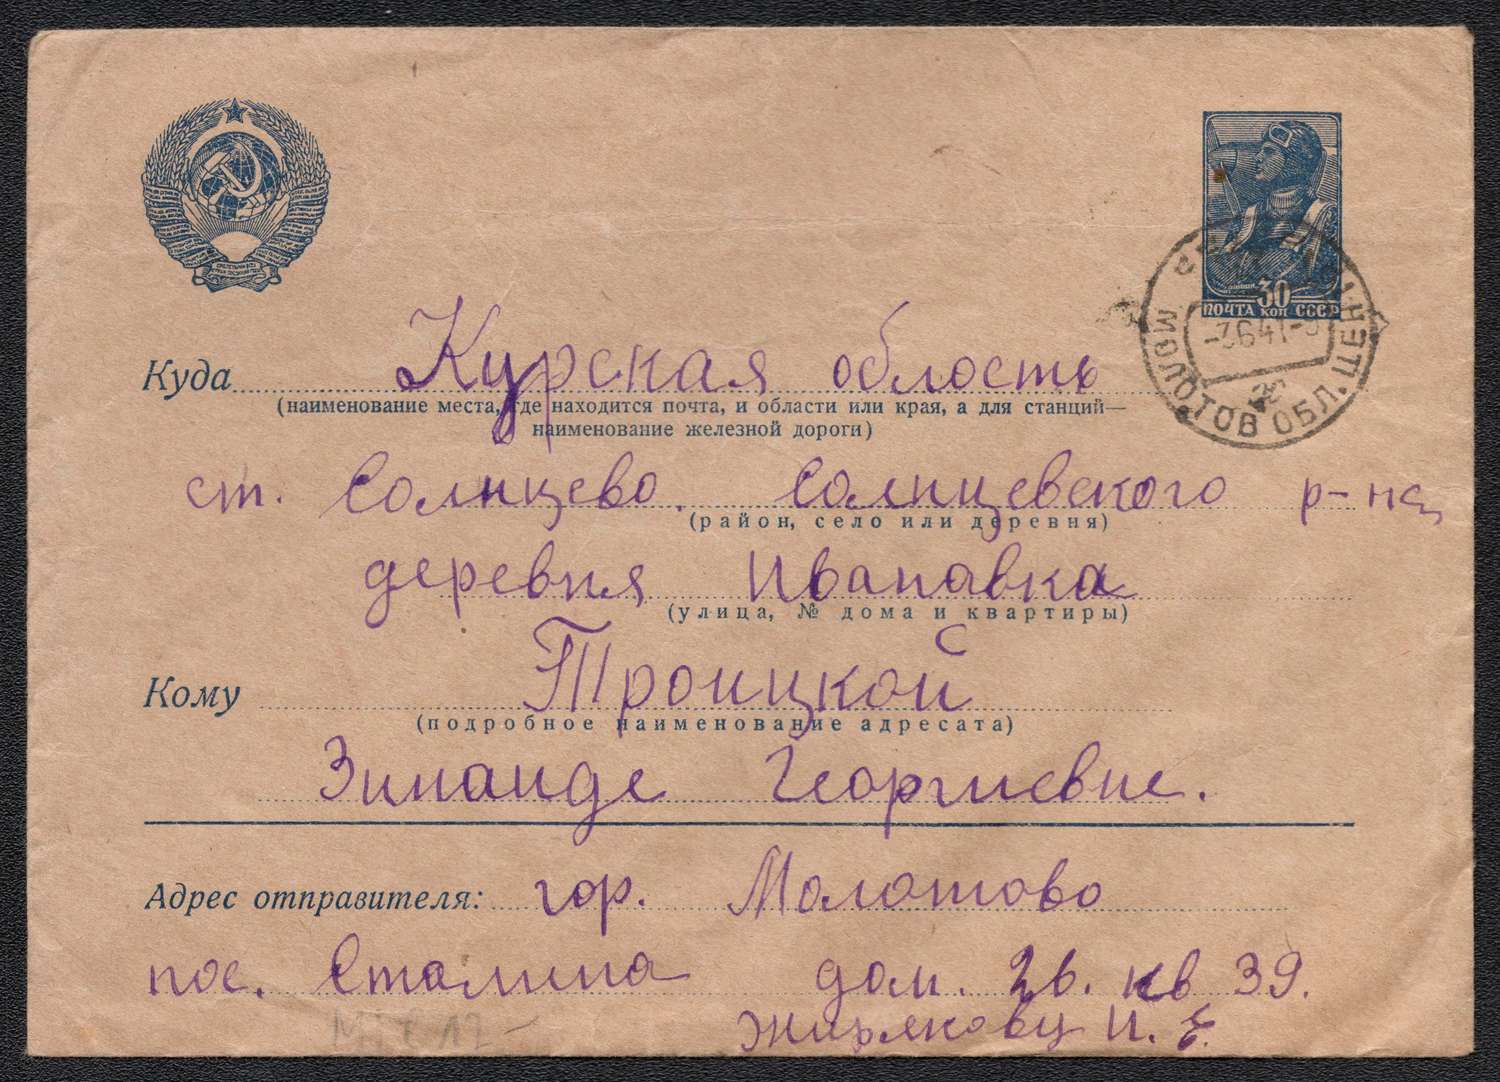 30
ПОЧТА КОП СССР
-3.6.41-
МОЛОТОВ ОБЛ.
Куда Курская область
(наименование места, где находится почта, и области или края, а для станций—
наименование железной дороги)
ст. Солнцево. Солнцевского р-на
(район, село или деревня)
деревня Ивановка
(улица, № дома и квартиры)
Кому Троицкой
(подробное наименование адресата)
Зинаиде Георгиевне.
Адрес отправителя: гор. Молотово
пос. Сталина дом. 26. кв 39.
И. Е.